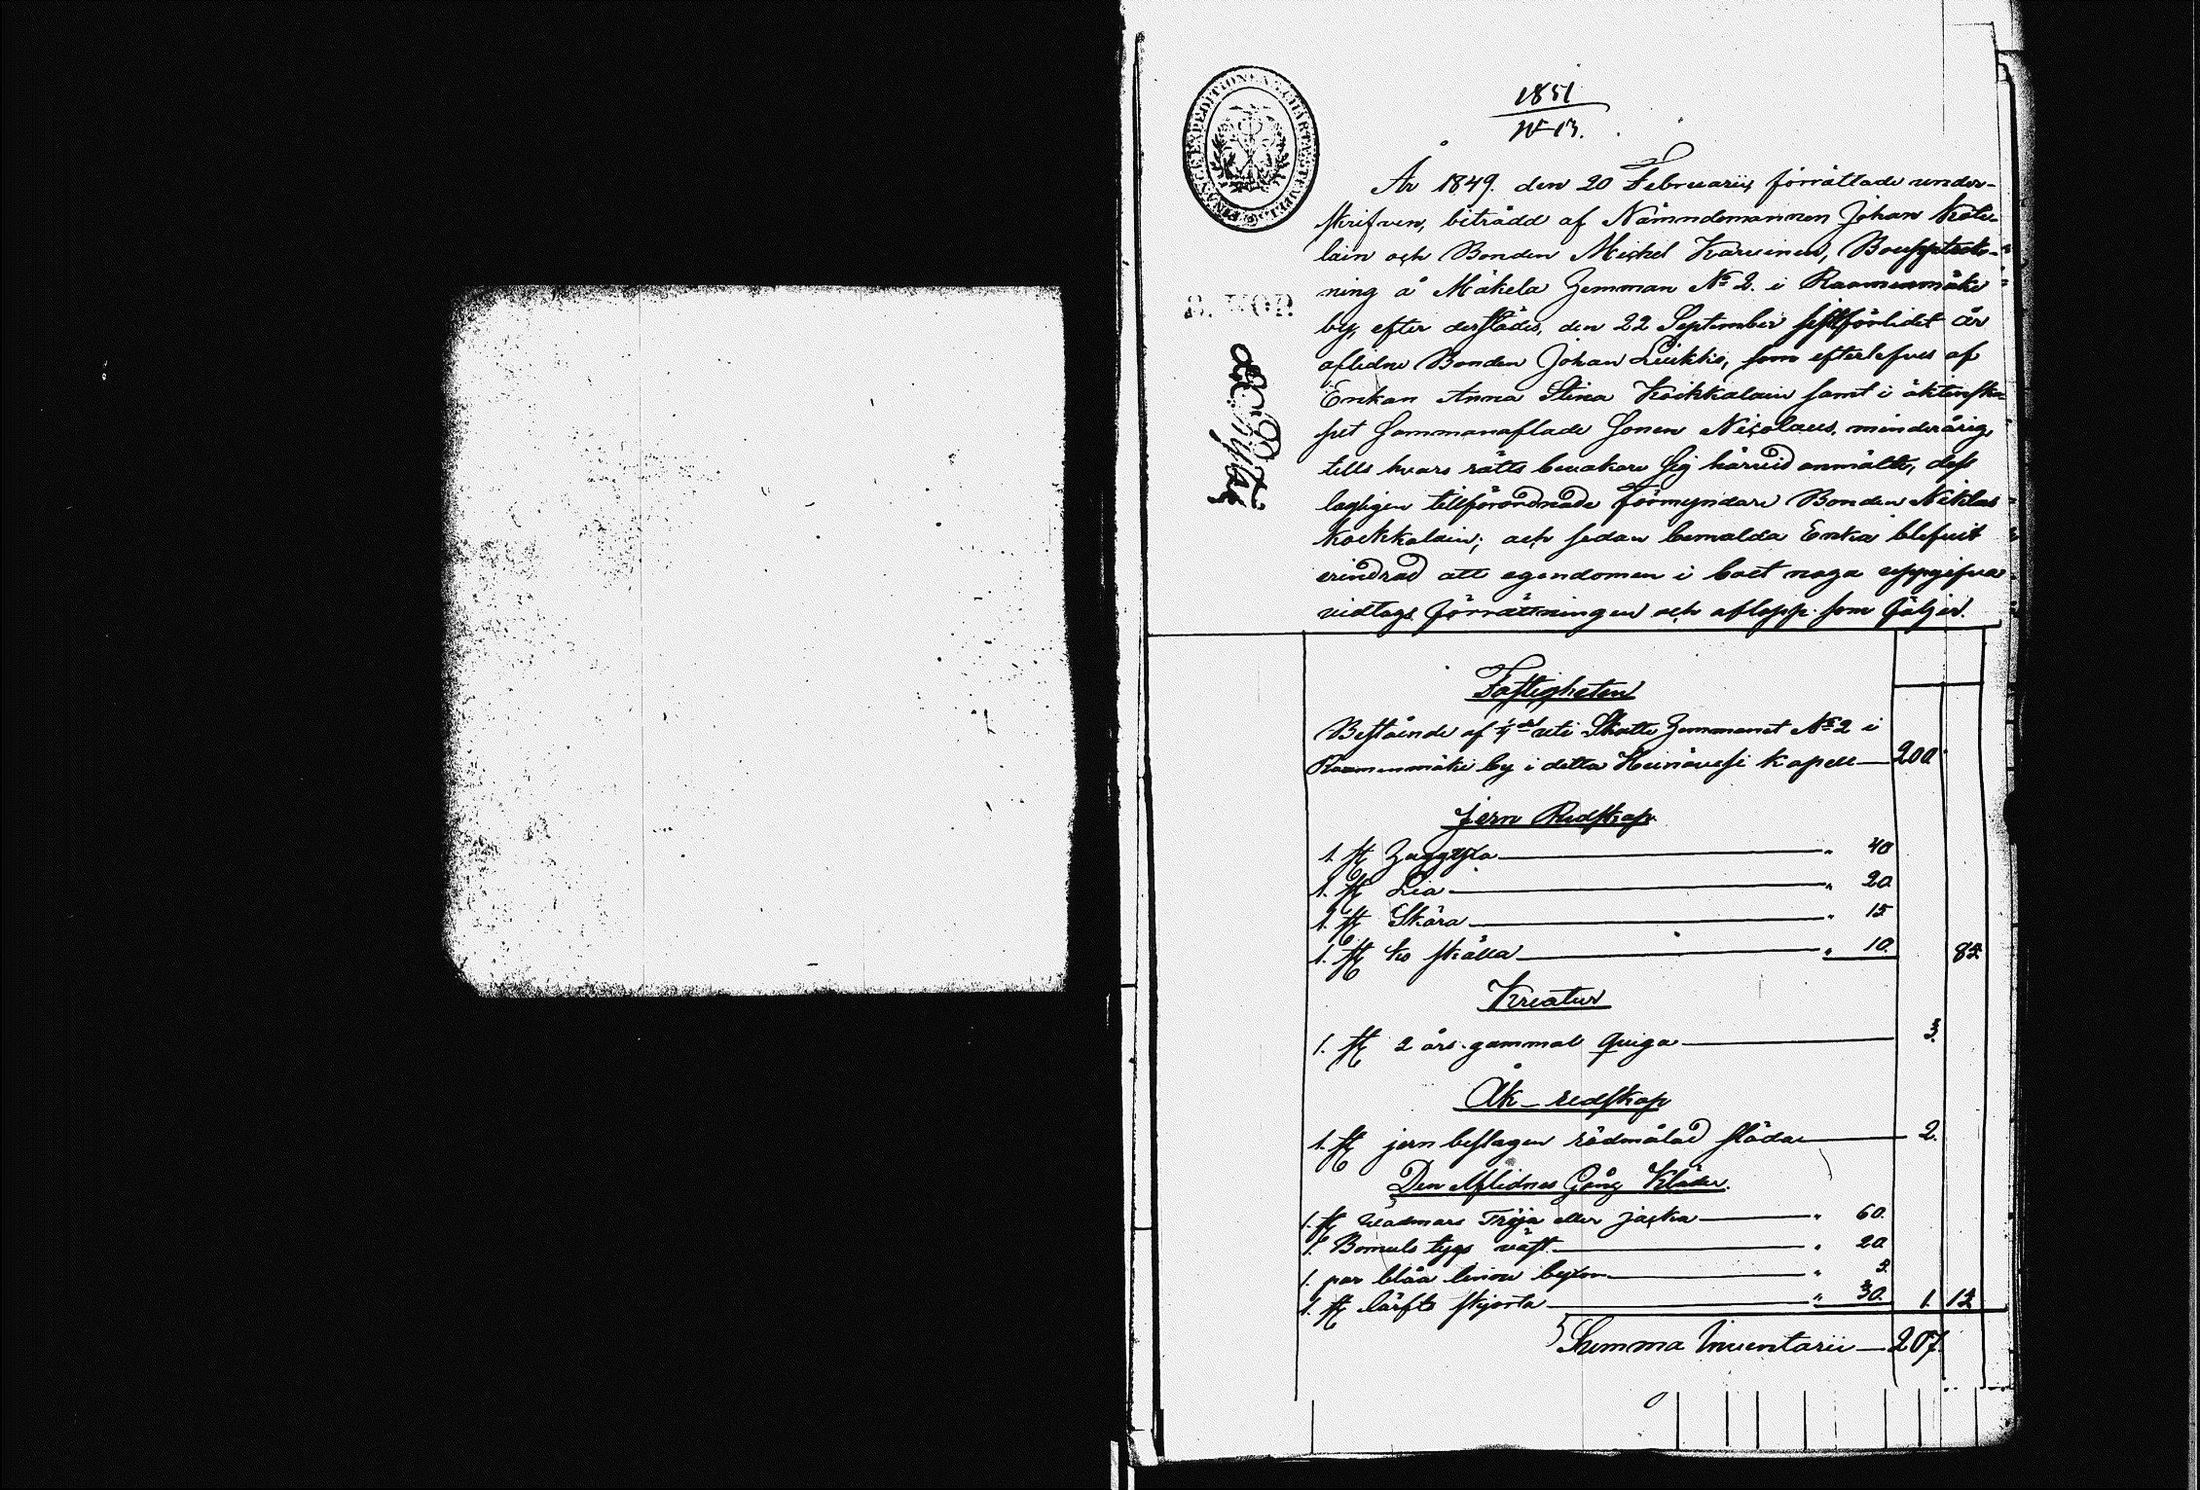 FINANCE EXPEDITIONEN CHARTÆ
1851
№ 13.
År 1849. den 20 Februarii, förrättade under-
skrifven, biträdd af Nämndemannen Johan
lain och Bonden Michel Karvinen,
ning å Mäkelä Hemman № 2. i
by, efter derstädes, den 22 September sistförlidet år
aflidne Bonden Johan Luukko, som efterlefves af
Enkan Anna Stina samt i äktenska-
pet sammanaflade sonen Nicolaus, minderårig,
tills hvars rätts bevakare sig härvid anmälte, dess
lagligen tillförordnade förmyndare Bonden Niklas
och sedan bemälda Enka blifvit
erindrad att egendomen i boet noga uppgifva
vidtogs förrättningen och aflopp som följer.
Fastigheten
Bestående af 1/4 del uti Skatte Hemmanet № 2 i
by i detta Heinävesi kapell 200
Jern Redskap
1. st 40
1. st Lia " 20
1. st Skära " 15
1. st Ko skälla " 10. 85
Kreatur
1. st 2 års gammal quiga 3.
Åk-redskap
1. st jern beslagen rödmålad släda 2.
Den Aflidnes Gång Kläder.
1. st Vadmars Tröja eller jacka " 60.
1. Bomuls tygs väst " 20
1. par blåa linne "
1. st lärfts skjorta " 30. 1. 12
Summa Inventarii 207.